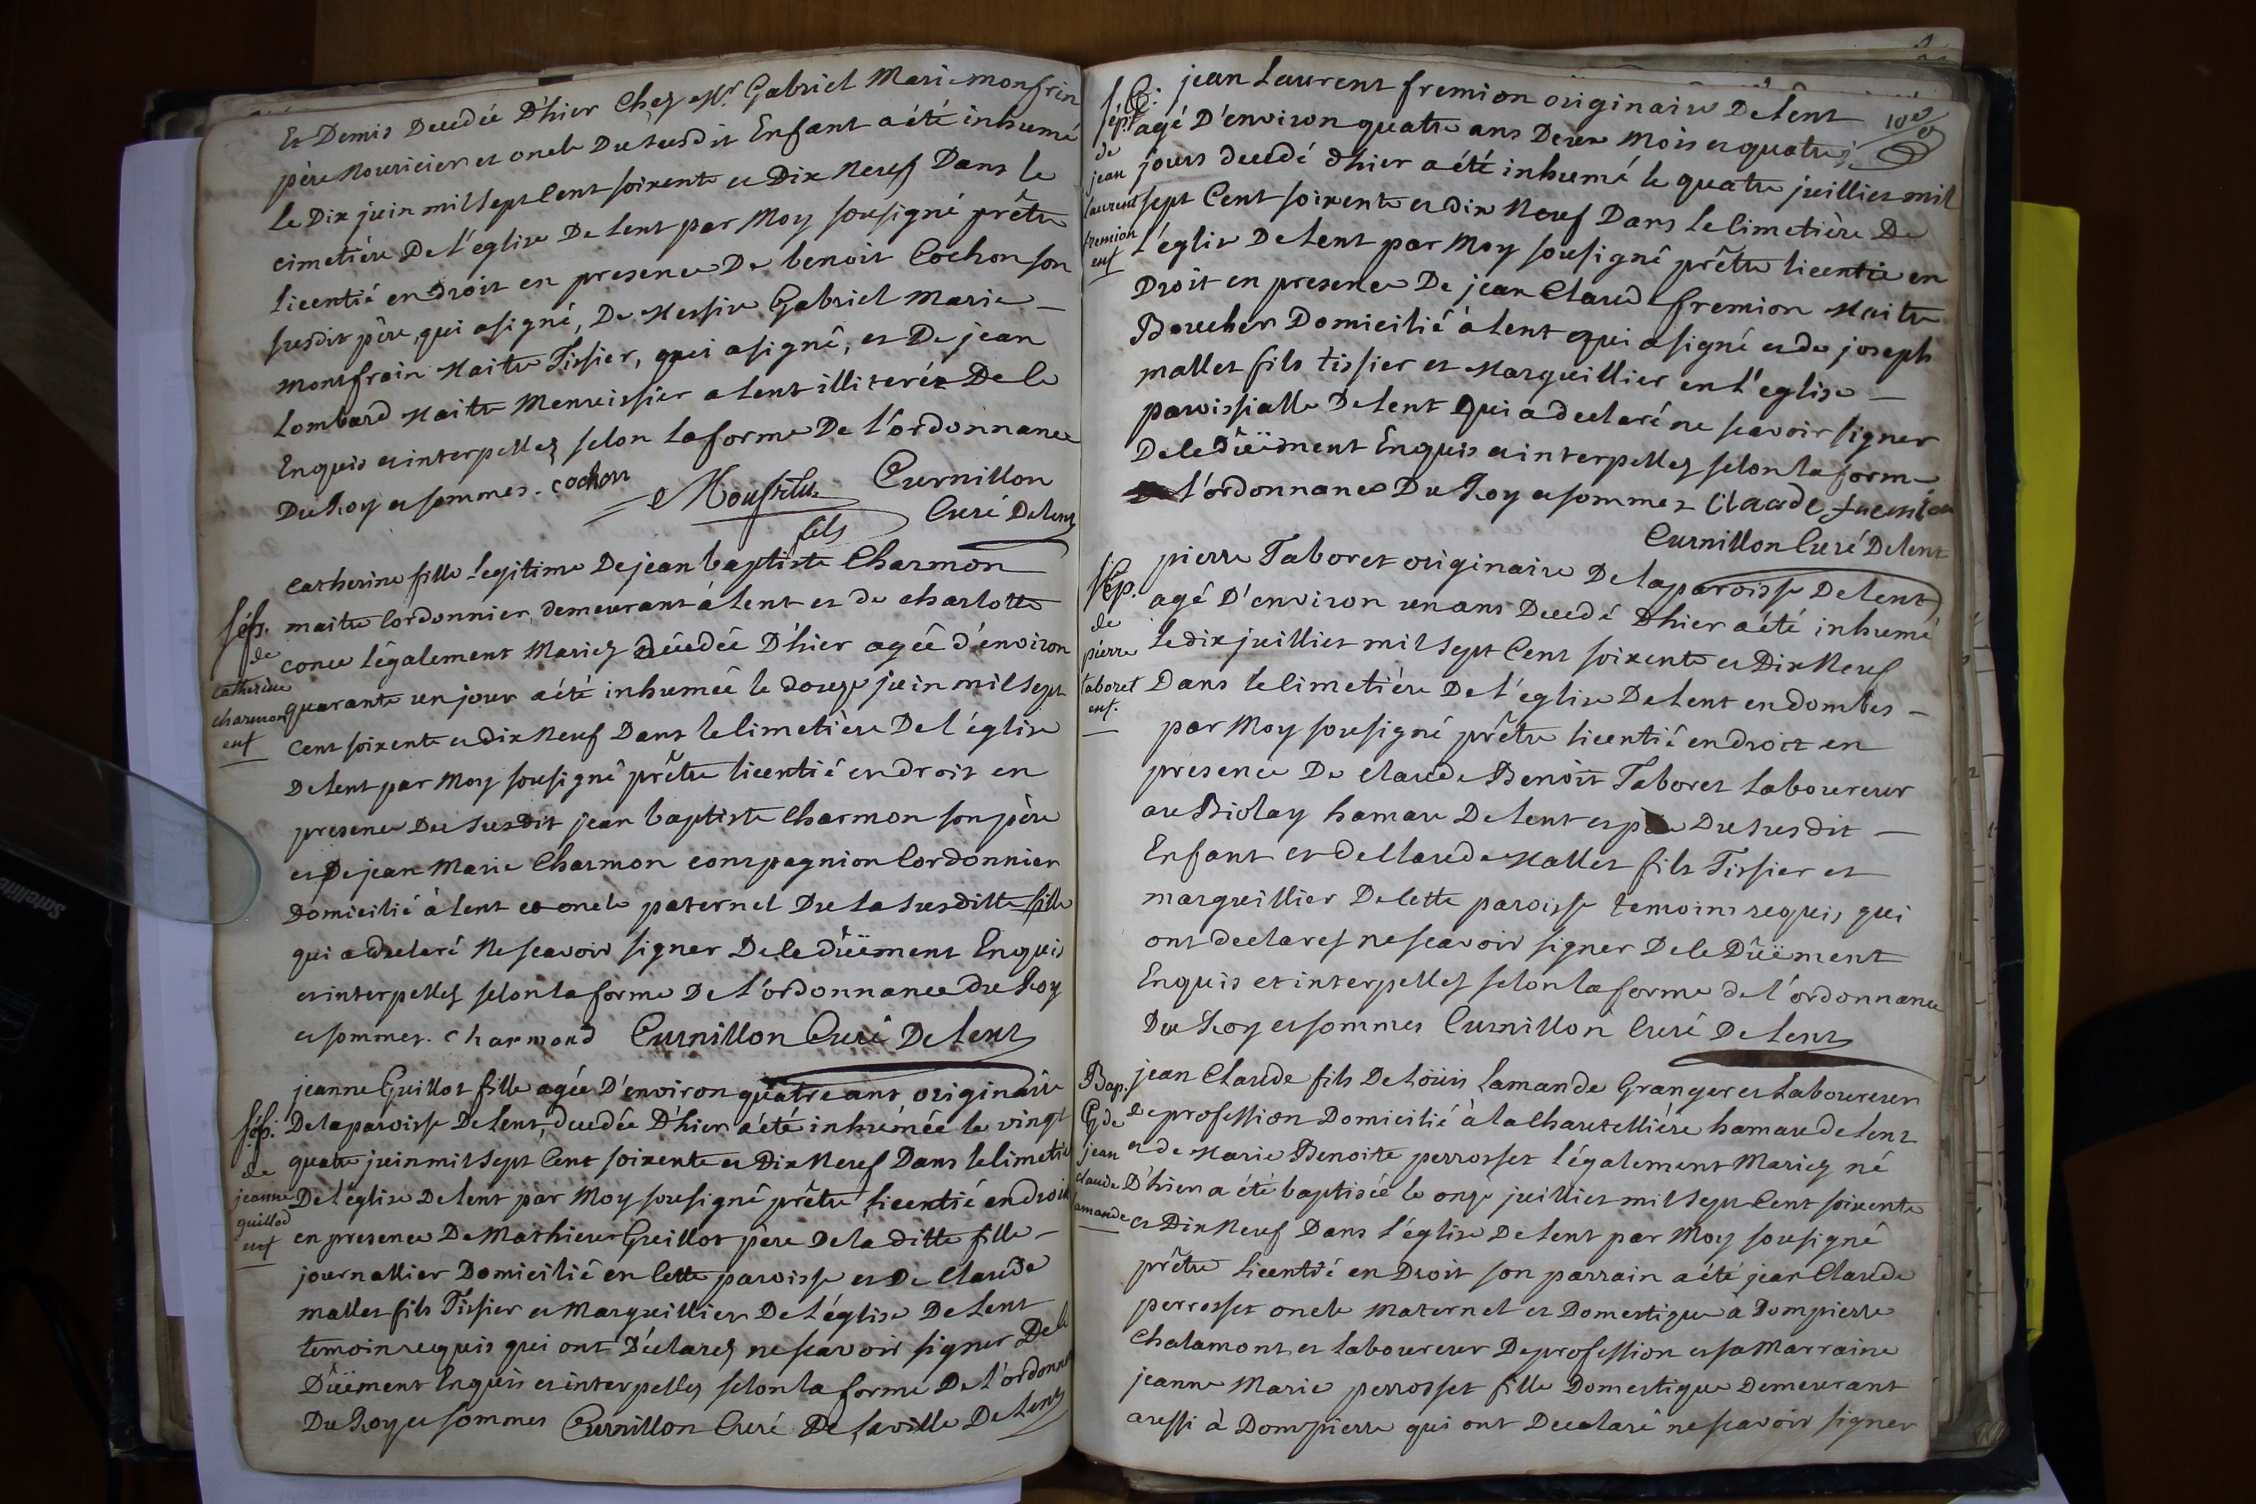 Et Demis Decedée D'hier Chez Mr. Gabriel Marie monfrin
père Nouricier et oncle Du susdit Enfant a été inhumé
le Dix juin mil sept Cent soixente et Dix Neuf Dans le
cimetière De l'eglise De Lent par Moy sousigné prêtre
licentié en Droit en presence De benoit Cochon son
susdit père, qui a signé, De Messire Gabriel Marie
monsfrain Maitre Tissier, qui a signé, et De jean
Lombard Maitre Menuissier a Lent illiterés De le
Enquis et interpellez selon la forme De l'ordonnance
Du Roy et sommes. cochon
Curnillon
fils
Curé De Lent
Sép.
de
catherine
charmon
enf
catherine fille legitime De jean baptiste Charmon
maitre Cordonnier, demeurant á Lent et de charlotte
conu légalement Mariez décedée D'hier agée d'environ
quarante un jour a été inhumée le douze juin mil sept
Cent soixente et dix Neuf Dans le Cimetière De l'église
De Lent par Moy sousigné prêtre licentié en droit en
presence Du susdit jean baptiste Charmon son père
et De jean Marie Charmon compagnion Cordonnier
Domicilié à Lent et oncle paternel De la susditte fille
qui a declaré Ne scavoir signer De le düëment Enquis
et interpellez selon la forme De l'ordonnance du Roy
et sommes. Charmond Curnillon Curé De Lent
Sép.
de
jeanne
guillod
enf
jeanne Guillot fille agée D'environ quatre ans originaire
De la paroisse De Lent, decedée D'hier a été inhumée le vingt
quatre juin mil sept Cent soixente et Dix Neuf Dans le Cimetiè
De l'église De Lent par Moy sousigné prêtre licentié en droit
en presence De Mathieu Guillot père De la ditte fille
journallier Domicilié en Cette paroisse et De Claude
mallet fils Tissier et Marguillier De l'église De Lent
temoins requis qui ont Déclarez ne scavoir signer De le
Düëment Enquis et interpellez selon la forme De l'ordonna
Du Roy et sommes Curnillon Curé De la ville De Lent
100
Sép.
de
jean
Laurent
fremion
enf
jean Laurent fremion originaire De Lent
agé D'environ quatre ans Deux Mois et quatre
jours decedé d'hier a été inhumé le quatre juillier mil
sept Cent soixente et dix Neuf Dans le Cimetière De
l'église De Lent par Moy sousigné prêtre licentié en
Droit en presence De jean Claude fremion Maitre
Boucher Domicilié à Lent qui a signé et de joseph
mallet fils tissier et Marguillier en L'eglise
paroissialle De Lent Qui a declaré ne scavoir signer
De le Düëment Enquis et interpellez selon la forme
l'ordonnance Du Roy et sommes Claude fremion
Curnillon Curé De Lent
Sép.
de
pierre
taboret
enf.
pierre Taboret originaire De la paroisse De Lent
agé D'environ un ans Decedé D'hier a été inhumé
Le dix juillier mil sept Cent soixente et Dix Neuf
Dans le Cimetière De l'eglise De Lent en dombes
par Moy sousigné prêtre licentié en droit en
presence De Claude Benoit Taboret Laboureur
au Biolay hamau De Lent et père Du susdit
Enfant et de Claude Mallet fils Tissier et
marguillier De Cette paroisse temoins requis, qui
ont declarez ne scavoir signer De le Düëment
Enquis et interpellez selon la forme de l'ordonnance
Du Roy et sommes Curnillon Curé De Lent
Bap.
de
jean
Claude
Lamande
jean Claude fils De Loüis Lamande Granger et Laboureur
De profession Domicilié à la Chatelliére hamau de Lent
et de Marie Benoite perrosset légalement Mariez né
D'hier a été baptisée le onze juillier mil sept Cent soixente
et Dix Neuf Dans l'église De Lent par Moy sousigné
prêtre Licentié en Droit son parrain a été jean Claude
perrosset oncle Maternel et Domestique à Dompierre
Chalamont et laboureur De profession et sa Marraine
jeanne Marie perrosset fille Domestique Demeurant
aussi à Dompierre qui ont Declaré ne scavoir signer